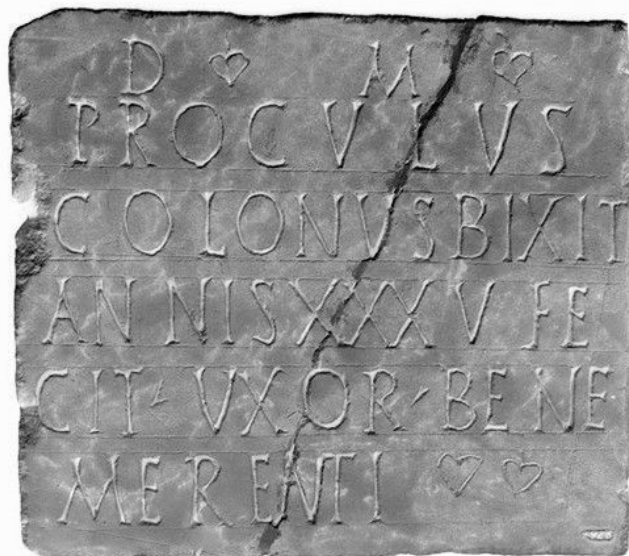 D ❦ M ❦
PROCVLVS
COLONVSBIXIT
ANNISXXXV FE
CIT · VXOR · BENE
MERENTI ❦ ❦